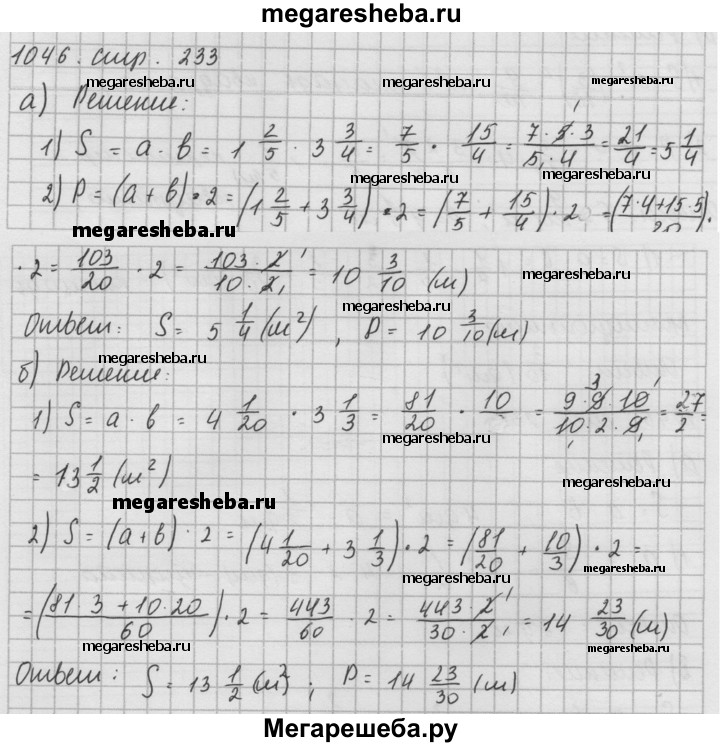 megaresheba.ru
1046. стр. 233
megaresheba.ru megaresheba.ru megaresheba.ru
а) Решение:
1) S = a · b = 1 2/5 · 3 3/4 = 7/5 · 15/4 = 7·5·3/5·4 = 21/4 = 5 1/4
megaresheba.ru megaresheba.ru
2) P = (a + b) · 2 = (1 2/5 + 3 3/4) · 2 = (7/5 + 15/4) · 2 = (7·4+15·5/20) ·
megaresheba.ru
· 2 = 103/20 · 2 = 103·2/10·2 = 10 3/10 (м)
megaresheba.ru
megaresheba.ru
Ответ: S = 5 1/4 (м²), P = 10 3/10 (м)
megaresheba.ru
б) Решение:
1) S = a · b = 4 1/20 · 3 1/3 = 81/20 · 10 = 9·9·10/10·2·9 = 27/2 =
megaresheba.ru
= 13 1/2 (м²)
megaresheba.ru
megaresheba.ru
2) S = (a+b) · 2 = (4 1/20 + 3 1/3) · 2 = (81/20 + 10/3) · 2 =
megaresheba.ru megaresheba.ru
= (81·3+10·20/60) · 2 = 443/60 · 2 = 443·2/30·2 = 14 23/30 (м)
megaresheba.ru megaresheba.ru
Ответ: S = 13 1/2 (м²); P = 14 23/30 (м)
megaresheba.ru
Мегарешеба.ру